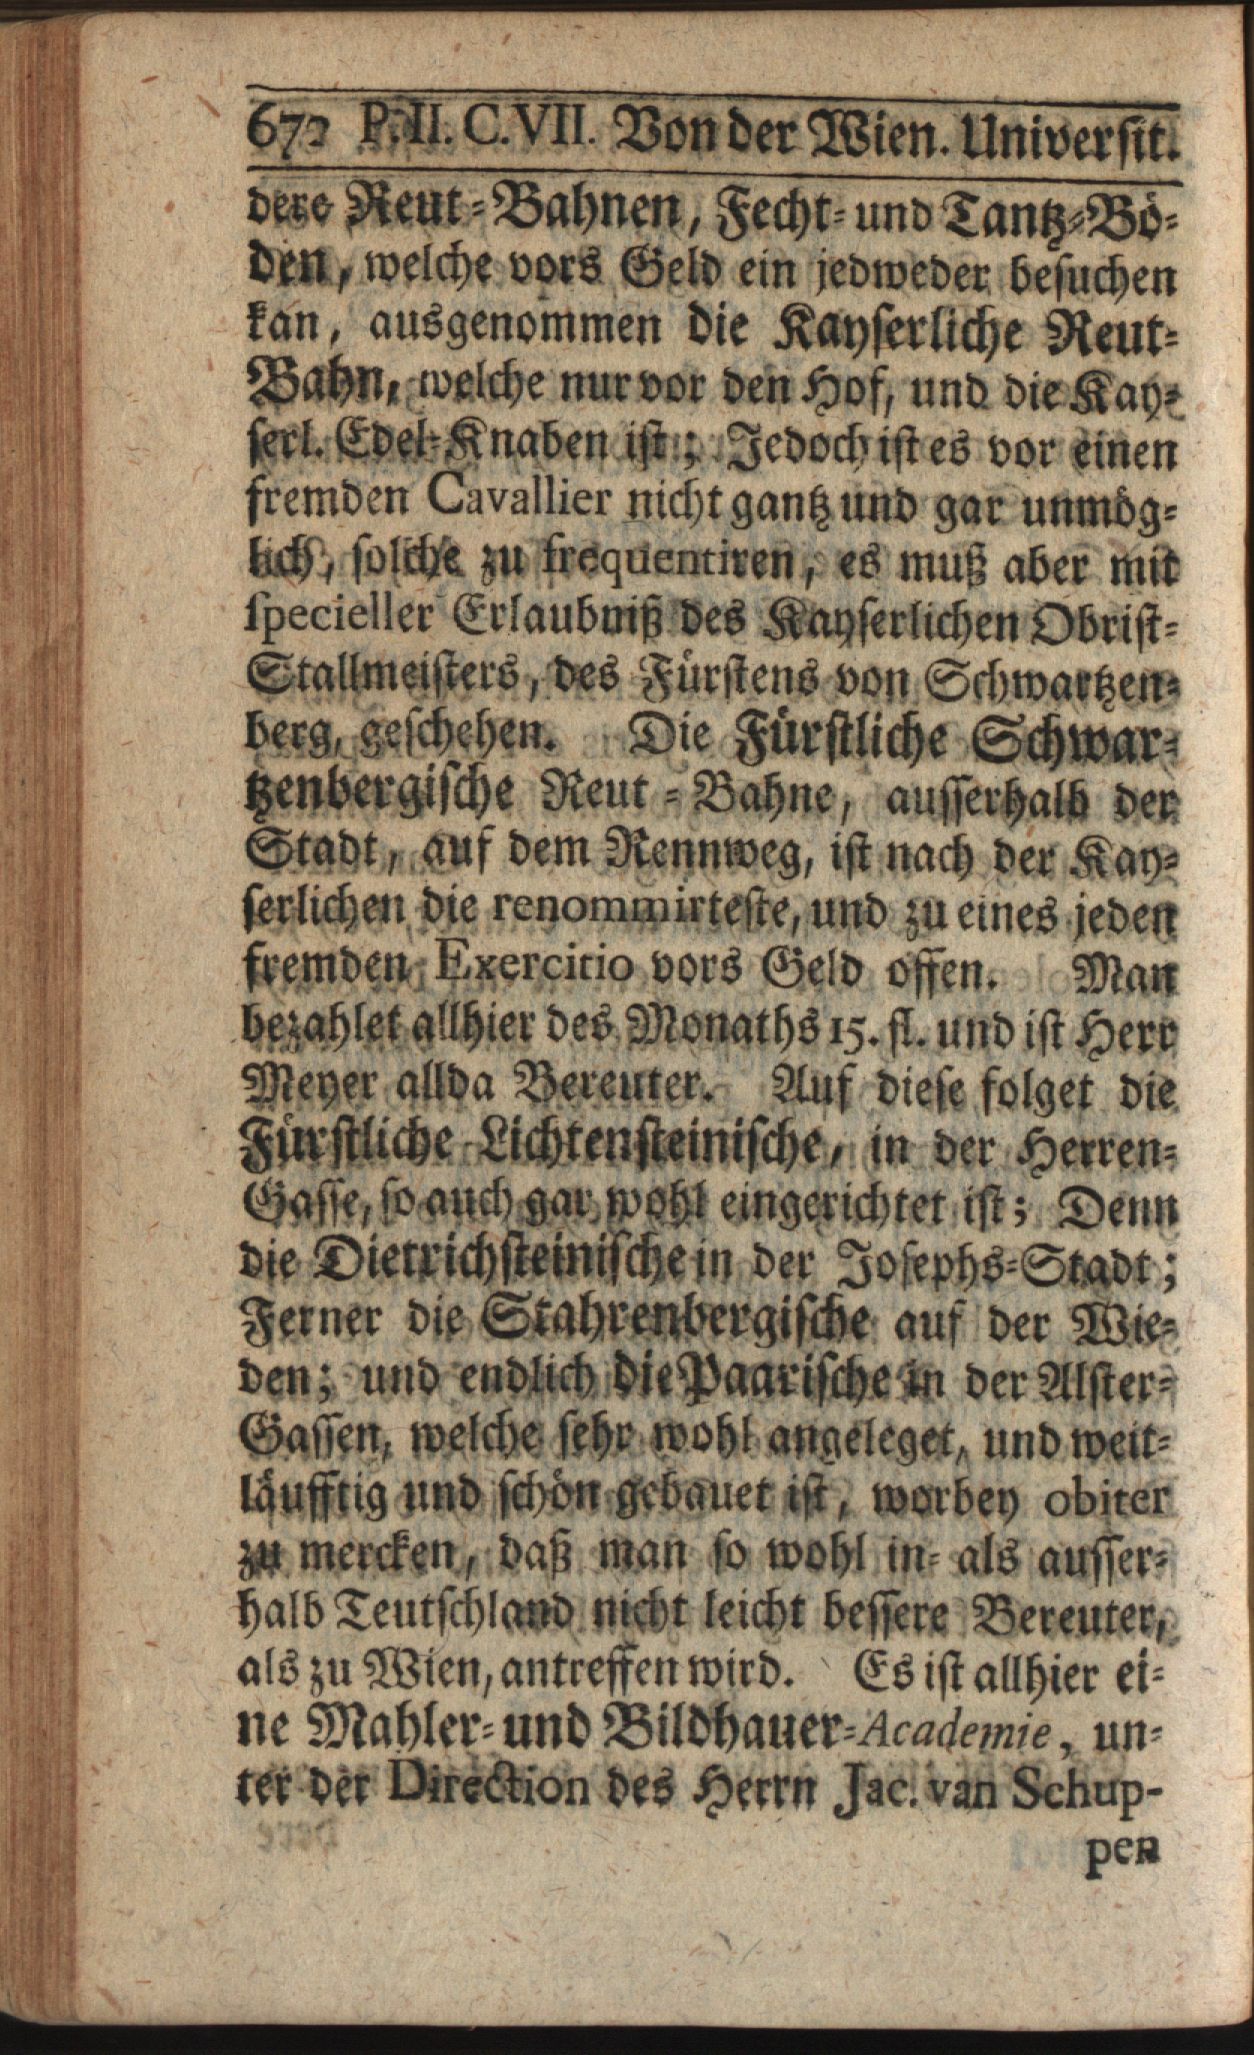 672 P. II. C. VII. Von der Wien. Universit.
dere Reut-Bahnen, Fecht- und Tantz-Bö-
den, welche vors Geld ein jedweder besuchen
kan, ausgenommen die Kayserliche Reut-
Bahn, welche nur vor den Hof, und die Kay-
serl. Edel-Knaben ist; Jedoch ist es vor einen
fremden Cavallier nicht gantz und gar unmög-
lich, solche zu frequentiren, es muß aber mit
specieller Erlaubniß des Kayserlichen Obrist-
Stallmeisters, des Fürstens von Schwartzen-
berg, geschehen. Die Fürstliche Schwar-
tzenbergische Reut-Bahne, ausserhalb der
Stadt, auf dem Rennweg, ist nach der Kay-
serlichen die renommirteste, und zu eines jeden
fremden Exercitio vors Geld offen. Man
bezahlet allhier des Monaths 15. fl. und ist Herr
Meyer allda Bereuter. Auf diese folget die
Fürstliche Lichtensteinische, in der Herren-
Gasse, so auch gar wohl eingerichtet ist; Denn
die Dietrichsteinische in der Josephs-Stadt;
Ferner die Stahrenbergische auf der Wie-
den; und endlich die Paarische in der Alster-
Gassen, welche sehr wohl angeleget, und weit-
läufftig und schön gebauet ist, worbey obiter
zu mercken, daß man so wohl in- als ausser-
halb Teutschland nicht leicht bessere Bereuter,
als zu Wien, antreffen wird. Es ist allhier ei-
ne Mahler- und Bildhauer-Academie, un-
ter der Direction des Herrn Jac. van Schup-
pen